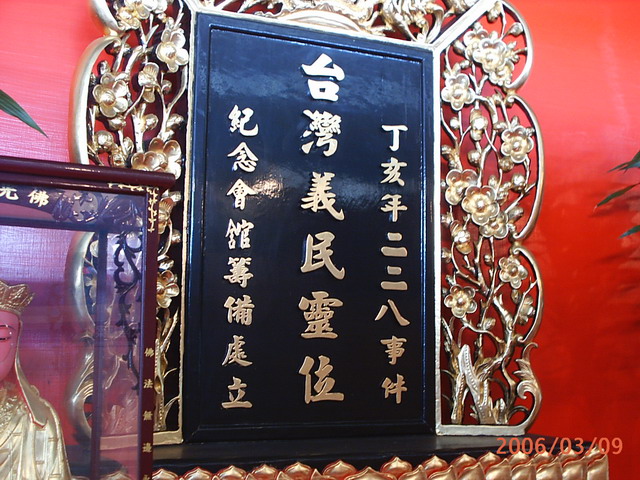 丁亥年二二八事件
台灣義民靈位
紀念會館籌備處立
佛光
佛法無邊
2006/03/09